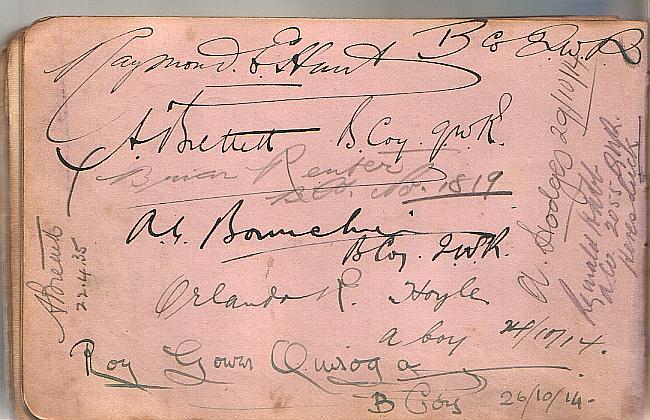 Raymond. E. Hunt B Co Q.W.R
A. Brettell B. Coy. Q.W.R.
Brian Renter
No. 1819
A. G.
B Coy. Q.W.R.
Orlando R. Hoyle
a boy 24/10/14.
Roy Gower Quiroga
B Coy 26/10/14.
22.4.35
A. Hodges 29/10/14
2055